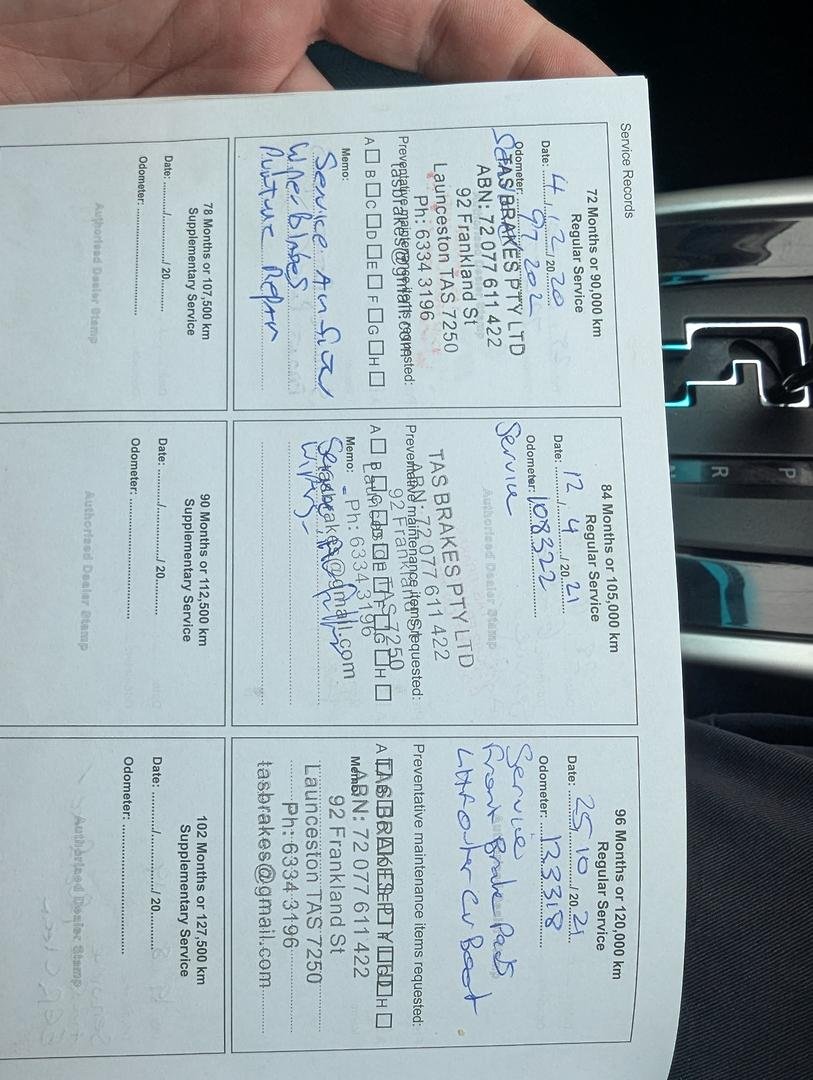 Service Records
72 Months or 90,000 km
Regular Service
Date: 4/12/2020
Odometer: 97202
Service
TAS BRAKES PTY LTD
ABN: 72 077 611 422
92 Frankland St
Launceston TAS 7250
Ph: 6334 3196
tasbrakes@gmail.com
Preventative maintenance items requested:
A B C D E F G H
Memo:
Service Air filter
Wiper Blades
Puncture Repair
84 Months or 105,000 km
Regular Service
Date: 12/4/2021
Odometer: 108322
Service
Authorised Dealer Stamp
TAS BRAKES PTY LTD
ABN: 72 077 611 422
92 Frankland St
Launceston TAS 7250
Ph: 6334 3196
tasbrakes@gmail.com
Preventative maintenance items requested:
A B C D E F G H
Memo:
Wipers
96 Months or 120,000 km
Regular Service
Date: 25/10/2021
Odometer: 123318
Service
Front Brake Pads
LH Outer CV Boot
Preventative maintenance items requested:
A B C D E F G H
Memo:
TAS BRAKES PTY LTD
ABN: 72 077 611 422
92 Frankland St
Launceston TAS 7250
Ph: 6334 3196
tasbrakes@gmail.com
78 Months or 107,500 km
Supplementary Service
Date: ......../......../ 20........
Odometer: ................................
Authorised Dealer Stamp
90 Months or 112,500 km
Supplementary Service
Date: ......../......../ 20........
Odometer: ................................
Authorised Dealer Stamp
102 Months or 127,500 km
Supplementary Service
Date: ......../......../ 20........
Odometer: ................................
Authorised Dealer Stamp
P
R
N